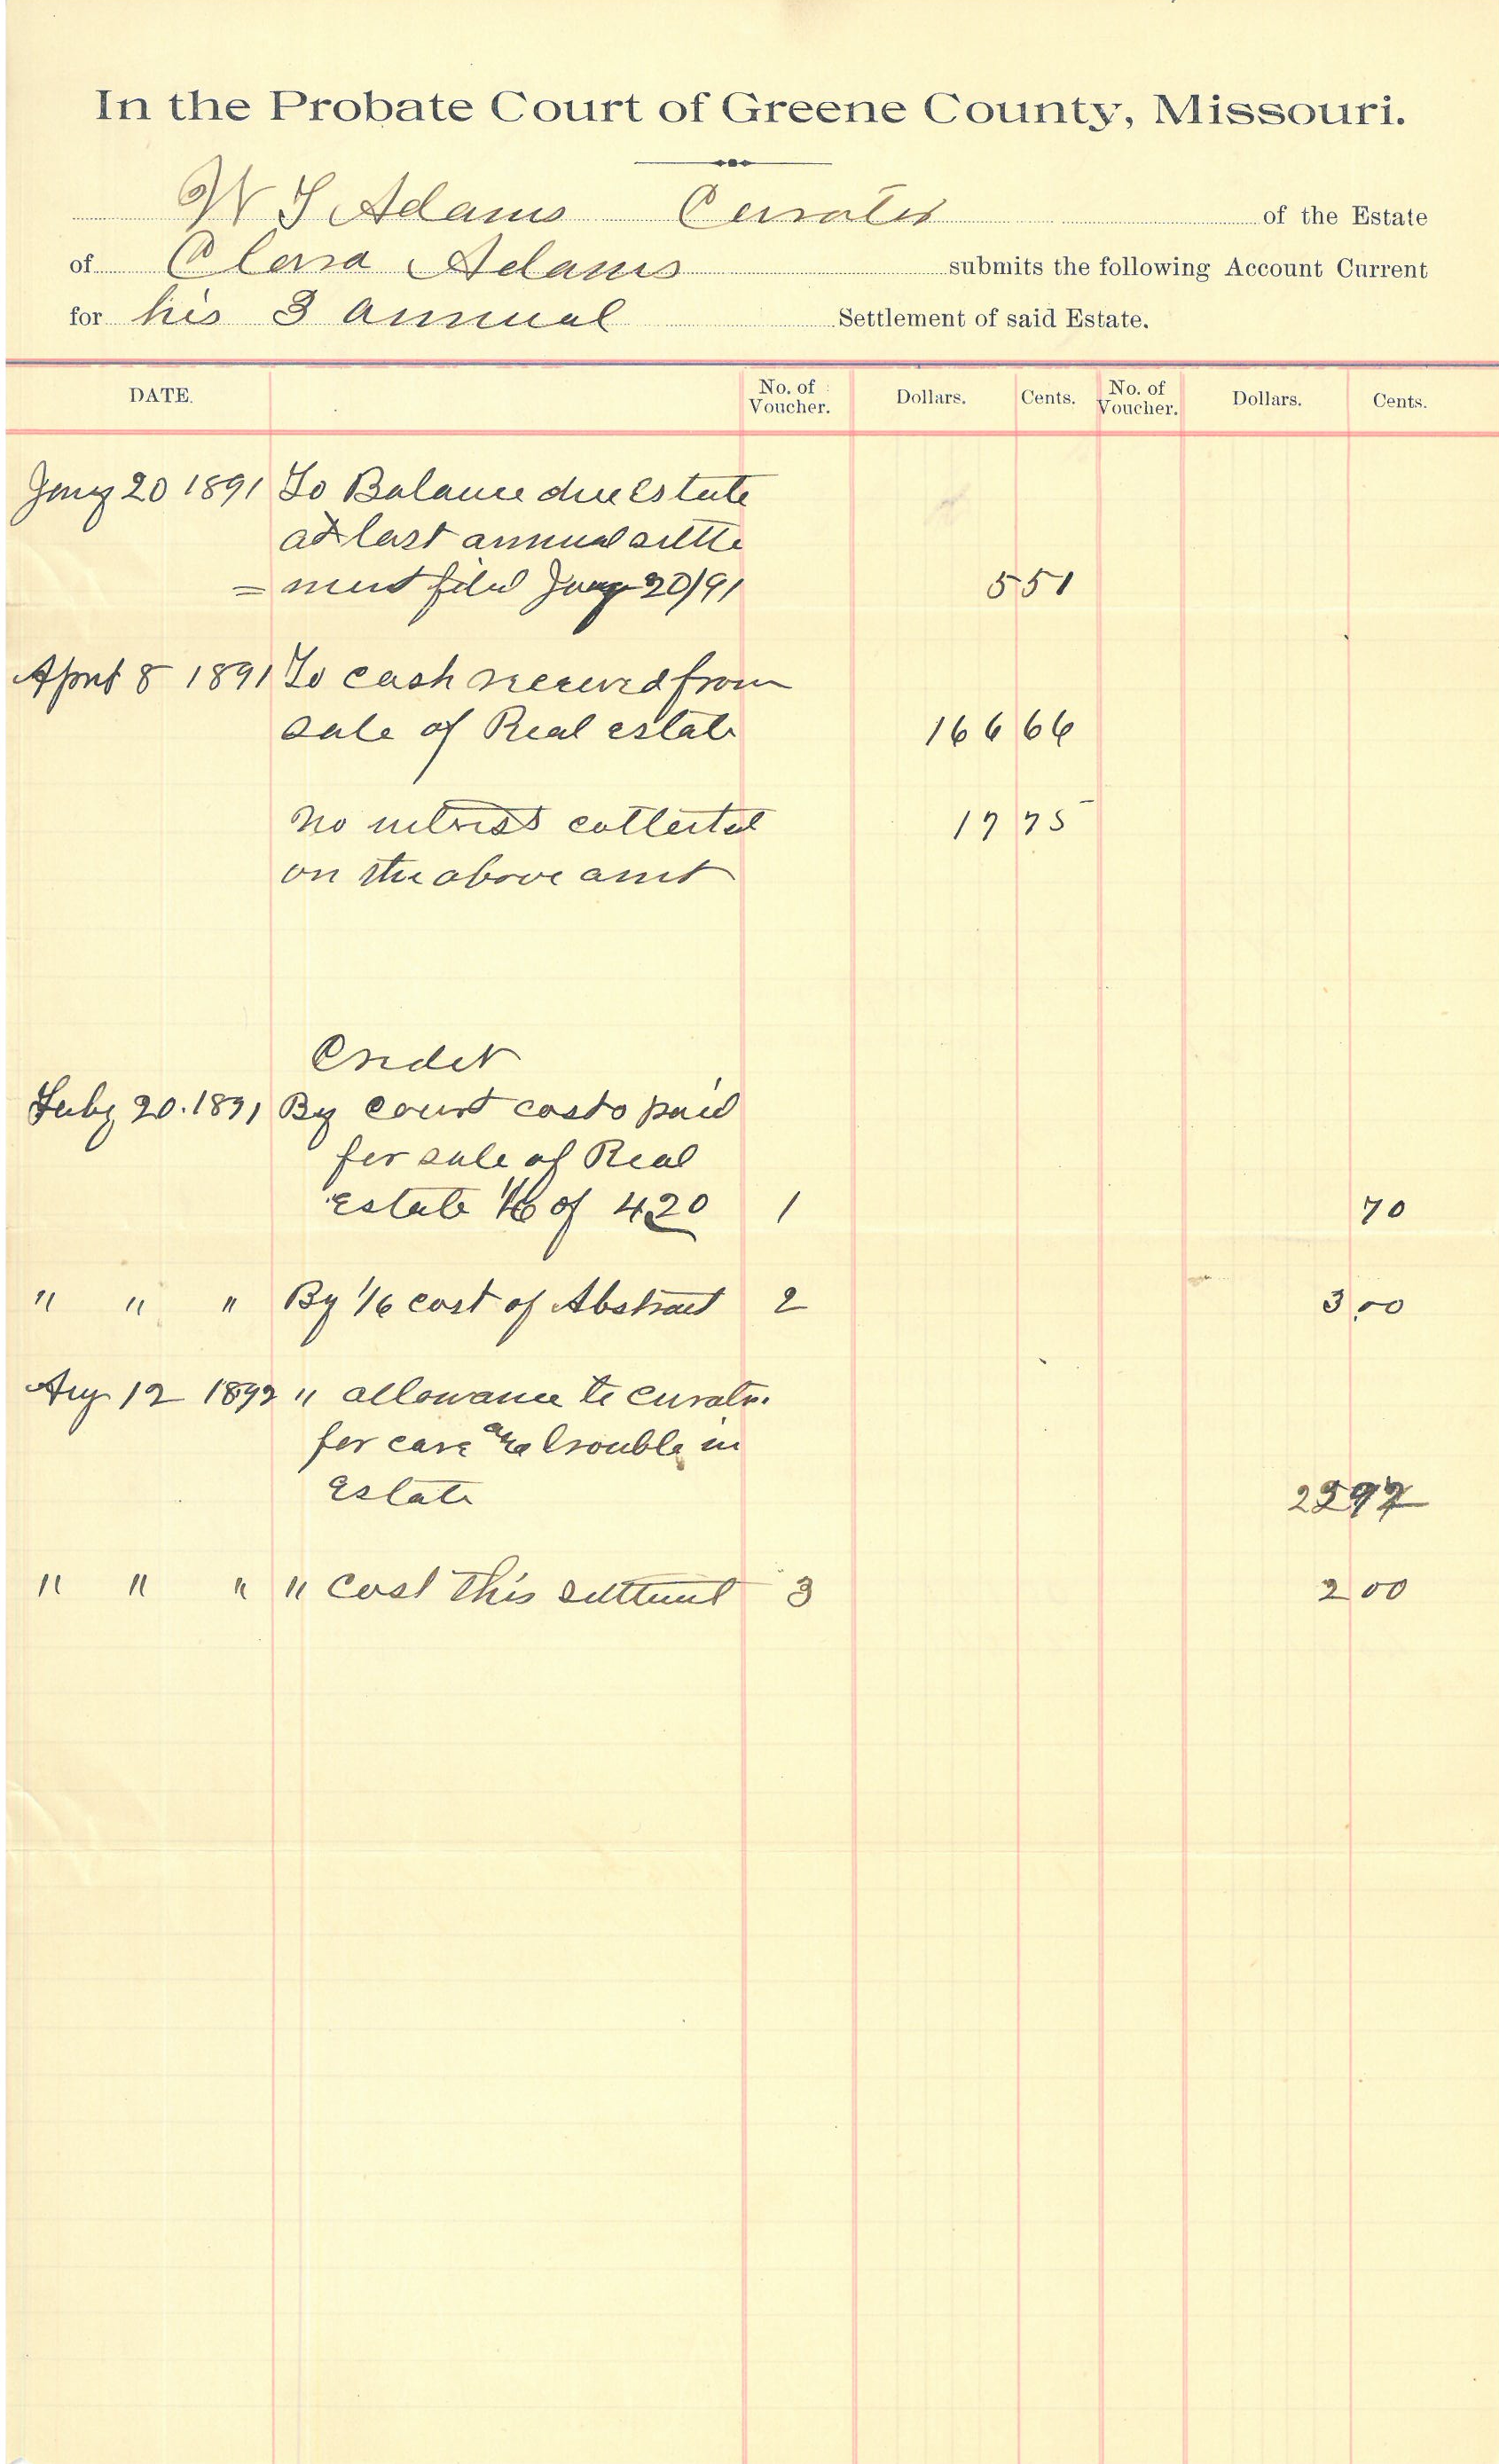 In the Probate Court of Greene County, Missouri.
W S Adams Curator of the Estate
of Clara Adams submits the following Account Current
for his 3 annual Settlement of said Estate.
DATE. No. of Voucher. Dollars. Cents. No. of Voucher. Dollars. Cents.
Jany 20 1891 To Balance due Estate
at last annual settle
= ment filed Jany 20/91 5 51
April 8 1891 To cash received from
sale of Real estate 166 66
no interest collected 17 75
on the above amt
Credit
July 20. 1891 By court costs paid
for sale of Real
Estate 1/6 of 420 1 70
" " " By 1/6 cost of Abstract 2 3.00
Aug 12 1892 " allowance to curator.
for care and trouble in
Estate
" " " " cost this settlment 3 2 00